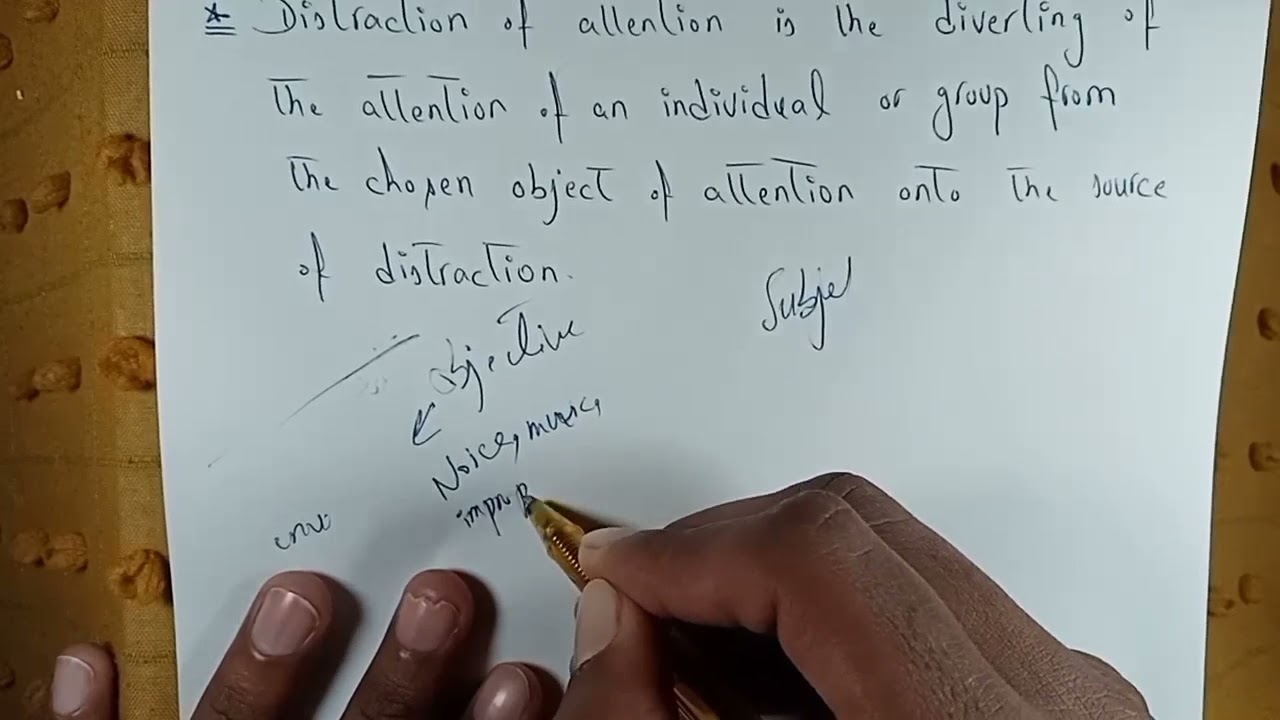 * Distraction of attention is the diverting of
the attention of an individual or group from
the chosen object of attention onto the source
of distraction.
Subje
objective
Noice, music,
improp
envi